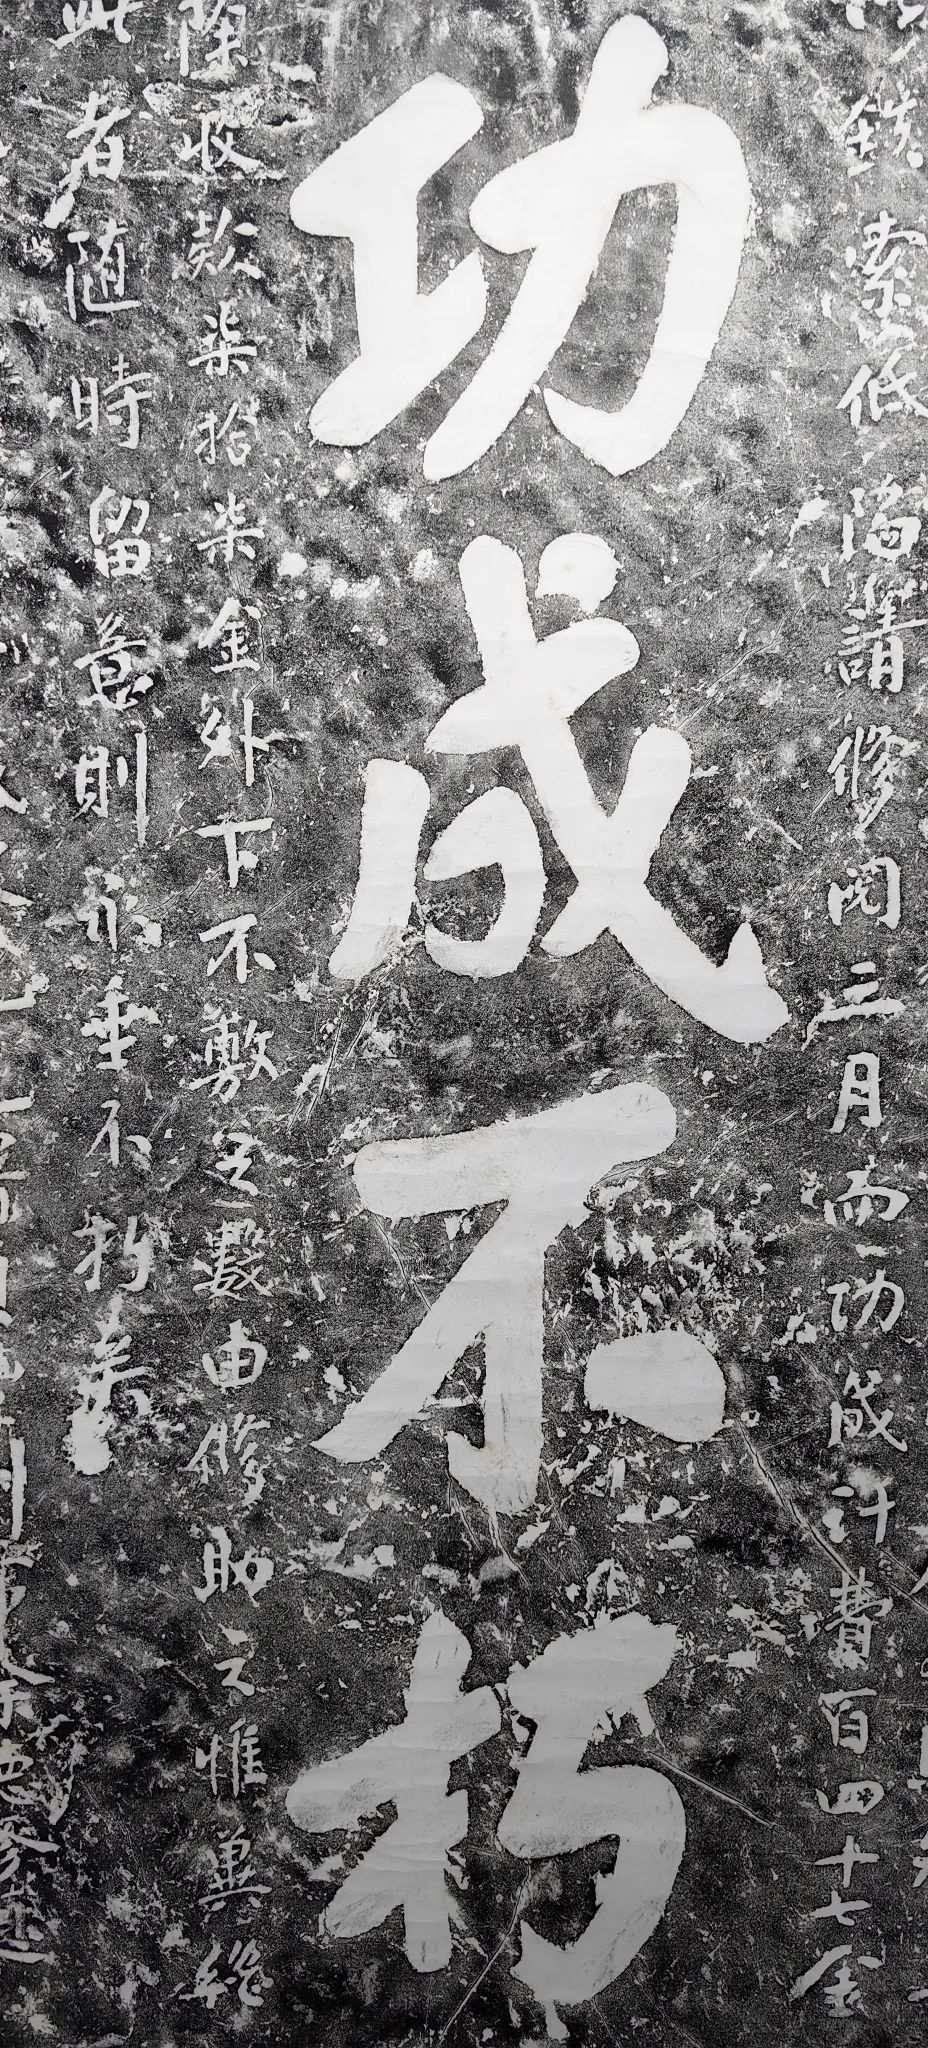 鐵索低陷請修閱三月而功成計費百四十七金
功成不朽
除收款柒拾柒金外下不敷之數由修助之惟冀繼
此者随時留意則永垂不朽矣